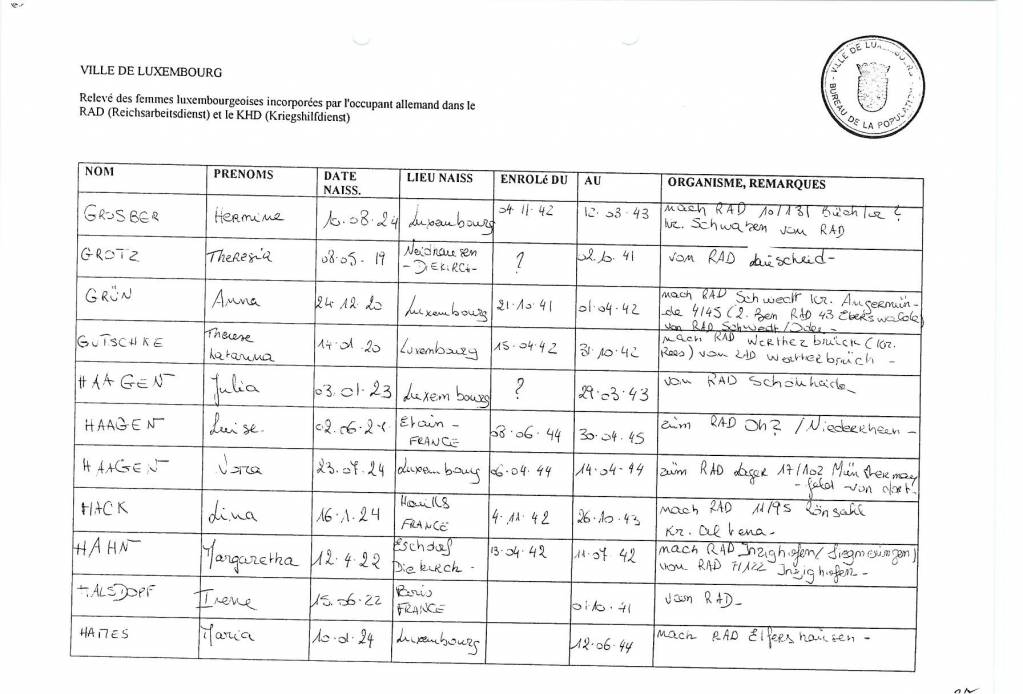 VILLE DE LUXEMBOURG
Relevé des femmes luxembourgeoises incorporées par l'occupant allemand dans le
RAD (Reichsarbeitsdienst) et le KHD (Kriegshilfdienst)
VILLE DE LUXEMBOURG
BUREAU DE LA POPULATION
NOM PRENOMS DATE NAISS. LIEU NAISS ENROLé DU AU ORGANISME, REMARQUES
GROSBER Hermine 10.08.24 Luxembourg 04.11.42 12.03.43 nach RAD 10/131 ?
Kr. Schwaben vom RAD
GROTZ Theresia 08.05.19 - DIEKIRCH - ? 02.10.41 vom RAD Lüscheid -
GRÜN Anna 24.12.20 Luxembourg 21.10.41 01.04.42 nach RAD Schwedt Kr. Angermün-
de 4/45 (2. RAD 43 Eberswalde)
von RAD Schwedt/Oder -
GUTSCHKE Therese Katarina 14.01.20 Luxembourg 15.04.42 31.10.42 nach RAD Wertherbruch (Kr.
Rees) vom RAD Wertherbruch -
HAAGEN Julia 03.01.23 Luxembourg ? 29.03.43 von RAD Schönheide
HAAGEN Luise. Etain - FRANCE 08.06.44 30.04.45 zum RAD Oh? / Niederrhein -
HAAGEN Vera 23.07.24 Luxembourg 06.04.44 14.04.44 zum RAD Lager 17/102 Münstermay-
- feld - von dort -
HACK Lina 16.1.24 FRANCE 4.11.42 26.10.43 nach RAD 11/95 Rönsahl
Kr. Altena -
HAHN Margaretha 12.4.22 Eschdorf Diekirch - 13.04.42 11.07.42 nach RAD Inzighofen/Siegmaringen)
vom RAD Inzighofen -
HALSDORF Irene 15.06.22 Paris FRANCE 01.10.41 vom RAD -
HAMES Maria 10.01.24 Luxembourg 12.06.44 nach RAD Elfershausen -